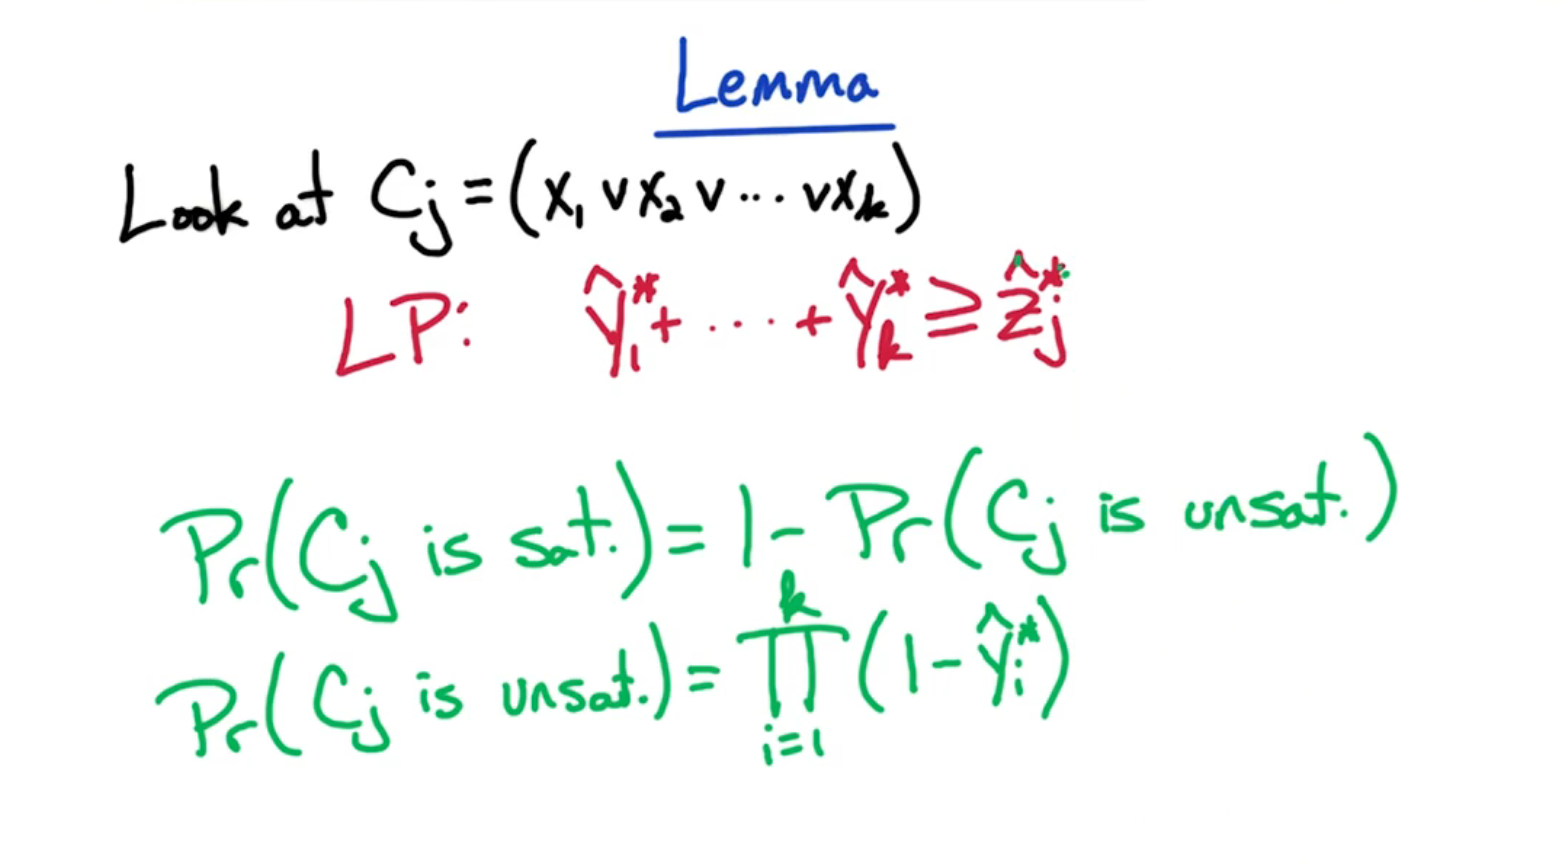 Lemma
Look at Cⱼ = (x₁ ∨ x₂ ∨ ··· ∨ xₖ)
LP: ŷ₁* + ···· + ŷₖ* ≥ ẑⱼ*
Pr(Cⱼ is sat.) = 1 - Pr(Cⱼ is unsat.)
Pr(Cⱼ is unsat.) = ∏ᵢ₌₁ᵏ (1 - ŷᵢ*)